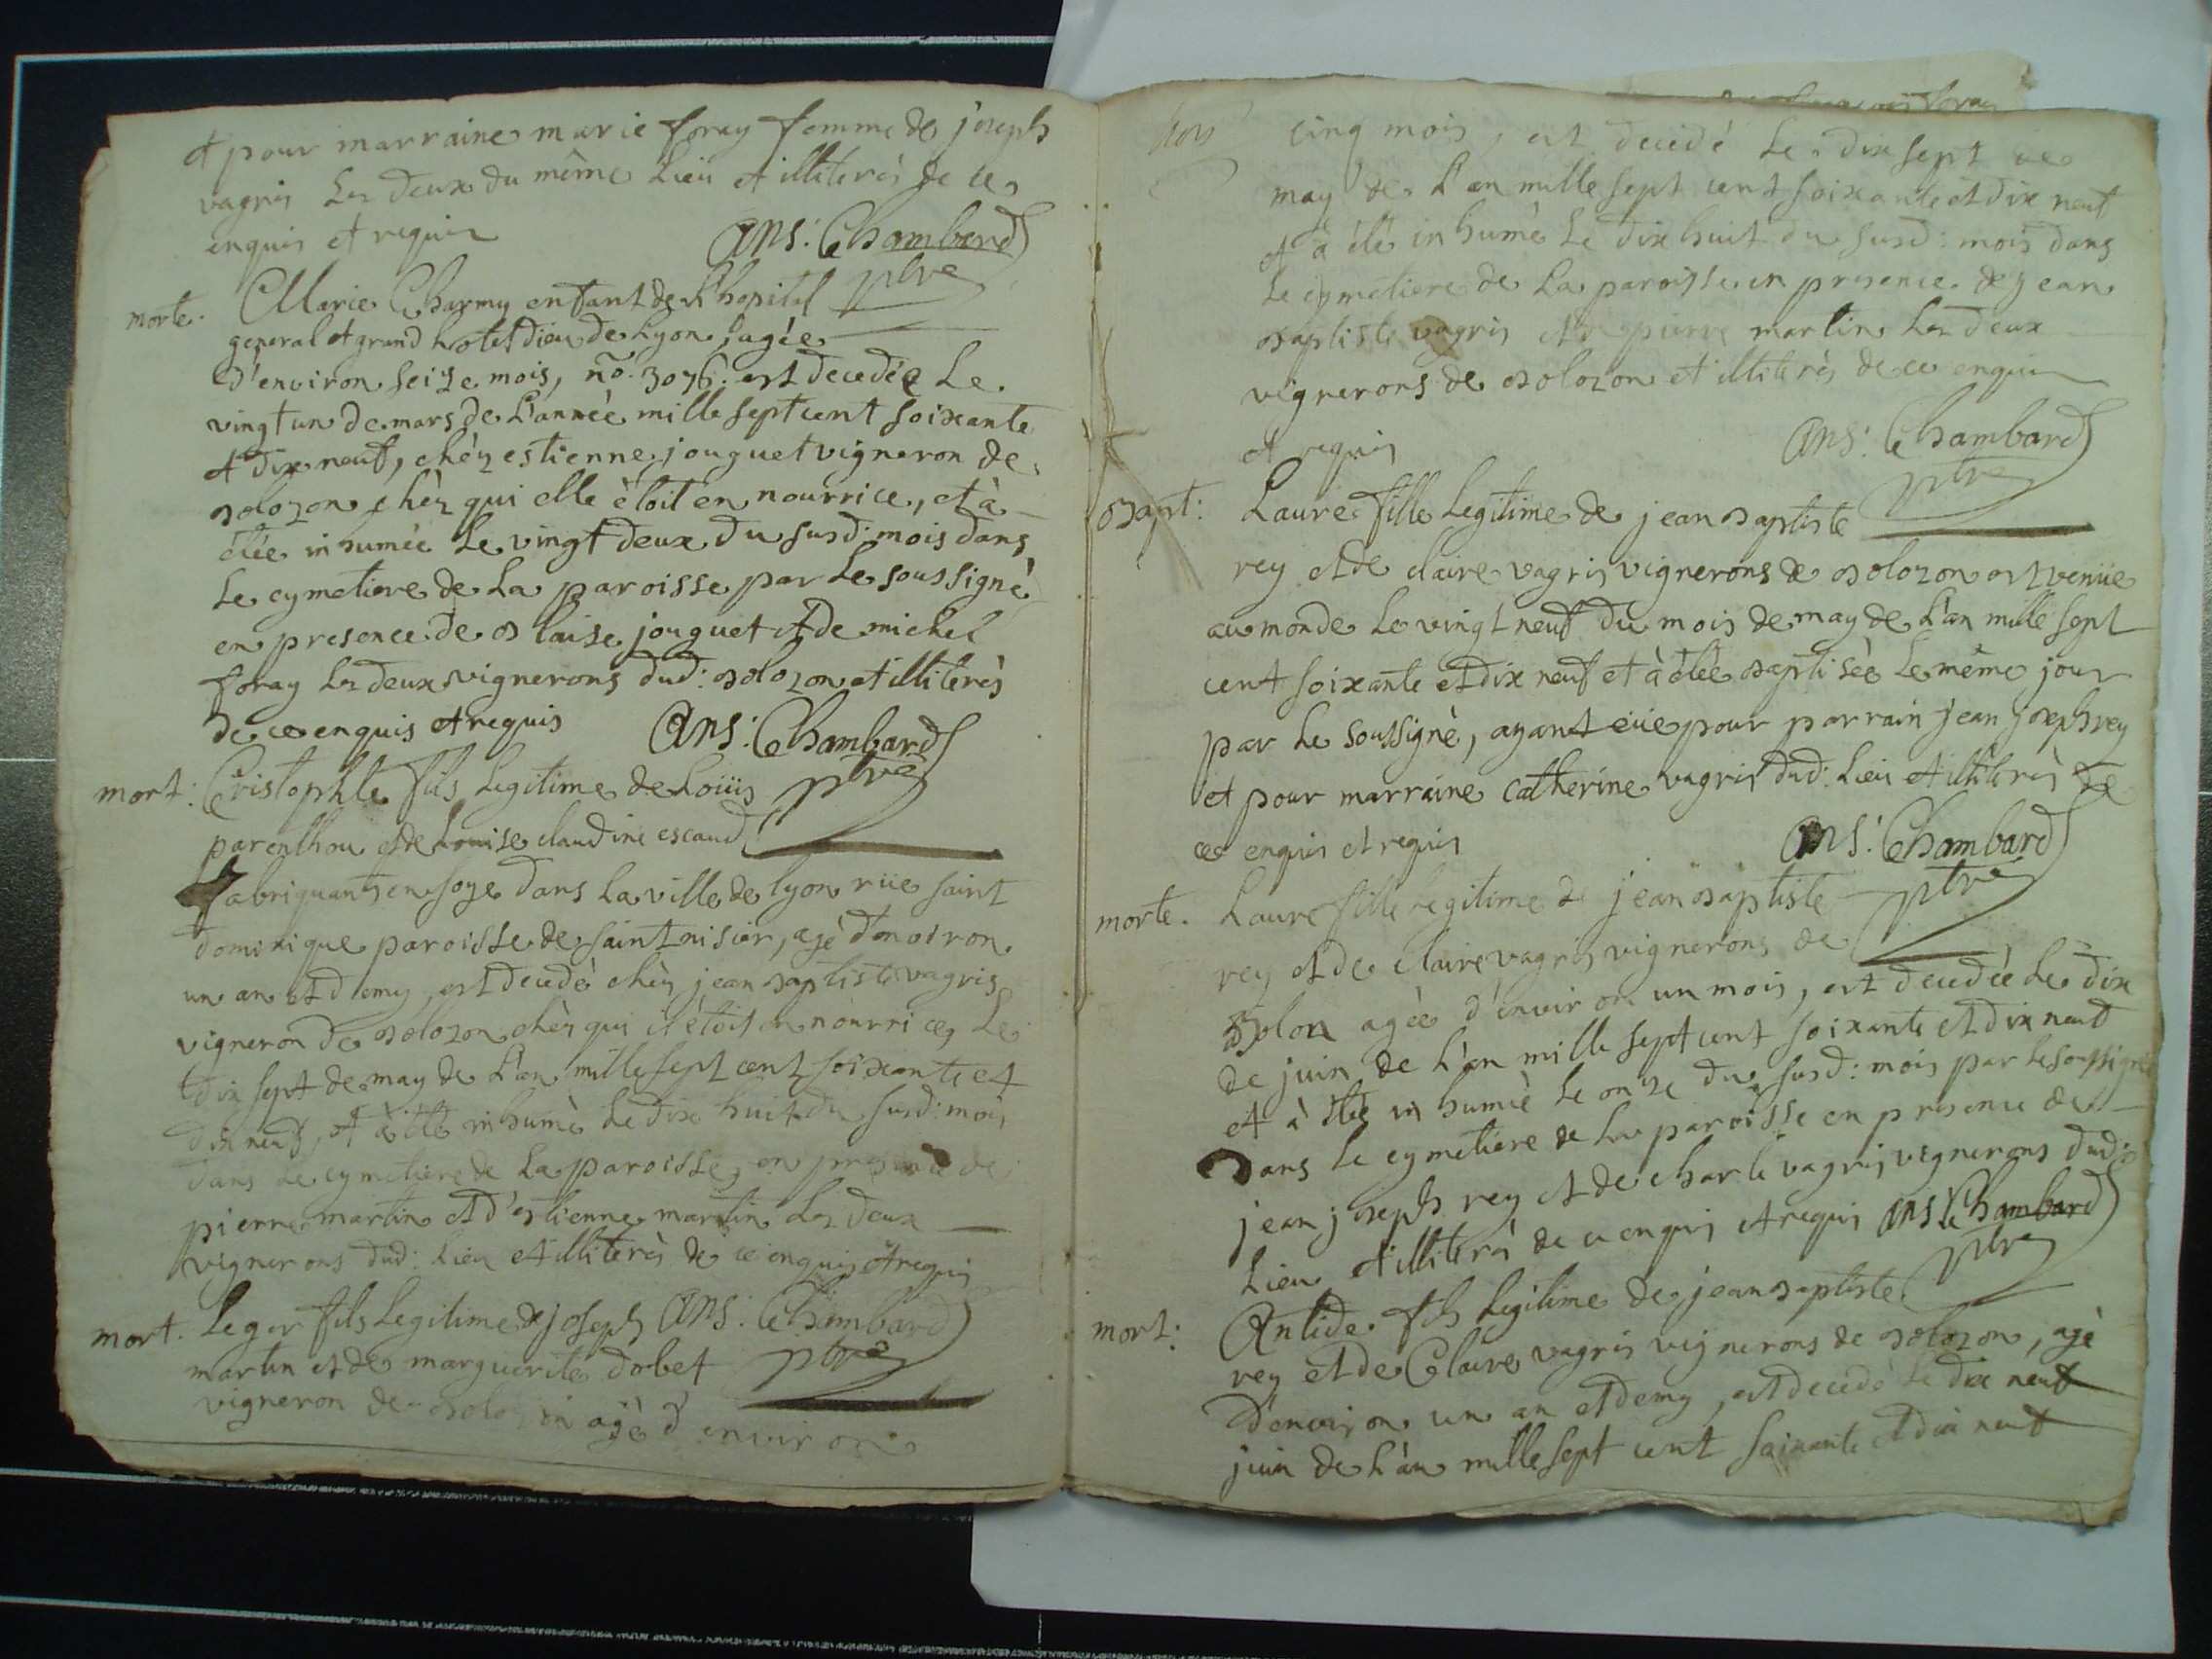 et pour marraine marie foray femme de joseph
vagris les deux du même lieu et illiterès de ce
enquis et requis ans: Chambard
ptre
morte. Marie Charmy enfant de l'hopital
general et grand hotel dieu de Lyon, agée
d'environ seize mois, no. 3076. est decedée le
vingt un de mars de l'année mille sept cent soixante
et dix neuf, chèz estienne jouguet vigneron de
bolozon chèz qui elle ètoit en nourrice, et à
étée inhumèe le vingt deux du susd: mois dans
le cymetiere de la paroisse par le soussignè
en presence de blaise jouguet et de michel
foray les deux vignerons dud: bolozon et illiterès
de ce enquis et requis ans: Chambard
ptre
mort: Cristophle fils legitime de Loüis
parenthou et de Louise claudine escaud
fabriquants en soye dans la ville de lyon rüe saint
dominique paroisse de saint nisier, agè d'environ
un an et demy, est decedè chèz jean baptiste vagris
vigneron de bolozon chèz qui il ètoit en nourrice, le
dix sept de may de l'an mille sept cent soixante et
dix neuf, et à été inhumè le dix huit du susd: mois
dans le cymetiere de la paroisse, en presence de
pierre martin et d'estienne martin les deux
vignerons dud: lieu et illiterès de ce enquis et requis
mort. Leger fils legitime de joseph ans: Chambard
martin et de marguerite dobet ptre
vigneron de bolozon agè d'environ
cinq mois, est decedé le dix sept de
may de l'an mille sept cent soixante et dix neuf
et à été inhumè le dix huit du susd: mois dans
le cymetiere de la paroisse en presence de jean
baptiste vagris et de pierre martin les deux
vignerons de bolozon et illiterès de ce enquis
et requis ans: Chambard
ptre
bapt: Laure fille legitime de jean baptiste
rey et de claire vagris vignerons de bolozon est venüe
au monde le vingt neuf du mois de may de l'an mille sept
cent soixante et dix neuf et à étée baptisèe le même jour
par le soussignè, ayant eüe pour parrain jean joseph rey
et pour marraine catherine vagris dud: lieu et illiterès de
ce enquis et requis ans: Chambard
ptre
morte. Laure fille legitime de jean baptiste
rey et de claire vagris vignerons de
bolon agèe d'environ un mois, est decedèe le dix
de juin de l'an mille sept cent soixante et dix neuf
et à étée inhumèe le onze du susd: mois par le soussigné
dans le cymetiere de la paroisse en presence de
jean joseph rey et de charle vagris vignerons dud:
lieu et illiterès de ce enquis et requis ans: Chambard
ptre
mort: Antide fils legitime de jean baptiste
rey et de Claire vagris vignerons de bolozon, agè
d'environ un an et demy, est decedé le dix neuf
juin de l'an mille sept cent soixante et dix neuf